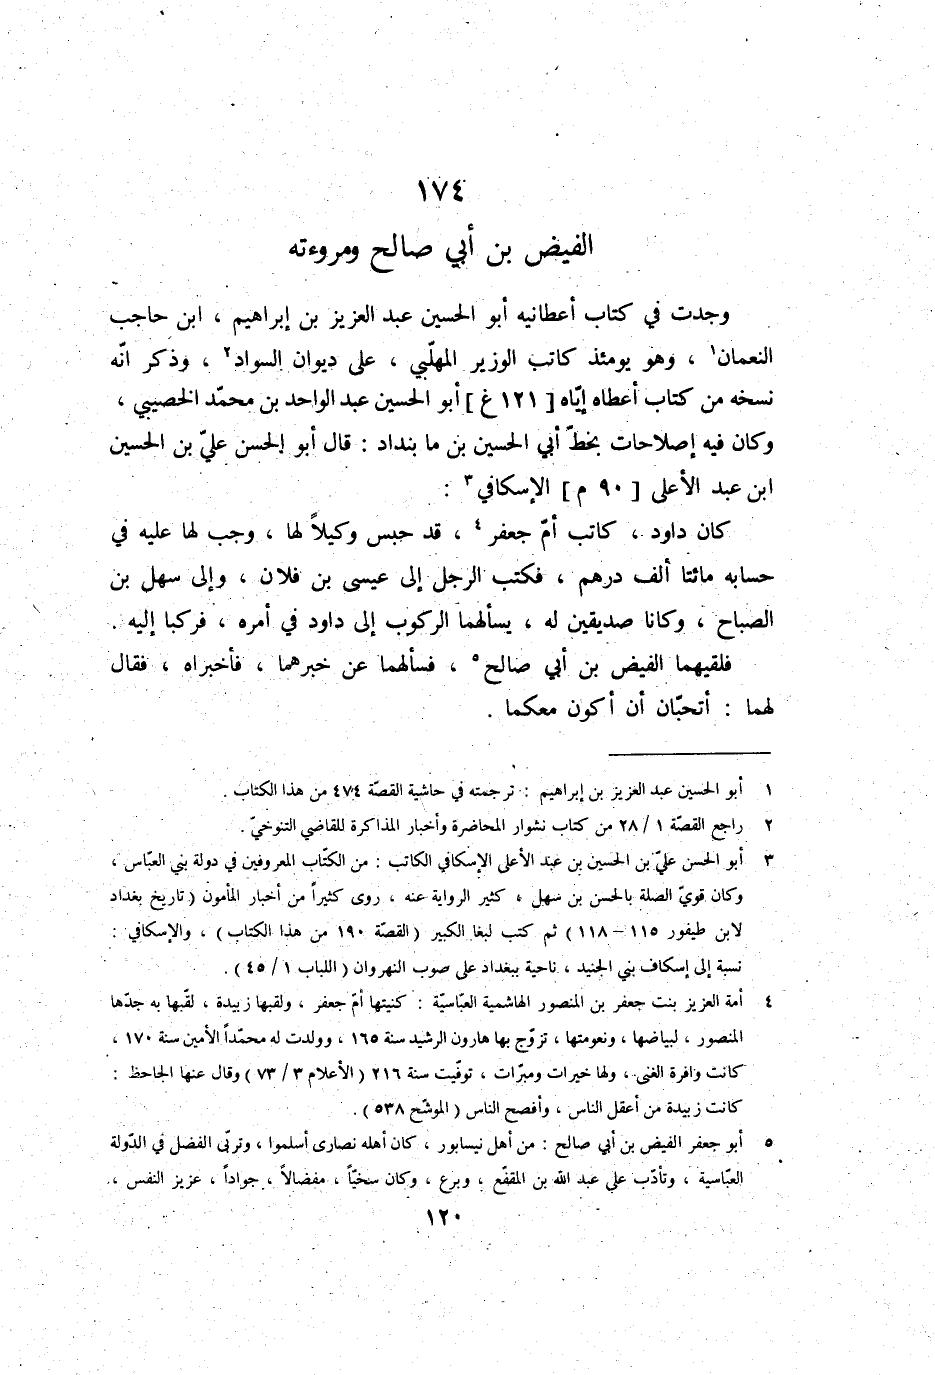 ١٧٤
الفيض بن أبي صالح ومروءته
وجدت في كتاب أعطانيه أبو الحسين عبد العزيز بن إبراهيم ، ابن حاجب
النعمان١ ، وهو يومئذ كاتب الوزير المهلّبي ، على ديوان السواد٢ ، وذكر انّه
نسخه من كتاب أعطاه إيّاه [ ١٢١ غ ] أبو الحسين عبد الواحد بن محمّد الخصيبي ،
وكان فيه إصلاحات بخطّ أبي الحسين بن ما بنداد : قال أبو الحسن عليّ بن الحسين
ابن عبد الأعلى [ ٩٠ م ] الإسكافي٣ :
كان داود ، كاتب أمّ جعفر٤ ، قد حبس وكيلاً لها ، وجب لها عليه في
حسابه مائتا ألف درهم ، فكتب الرجل إلى عيسى بن فلان ، وإلى سهل بن
الصباح ، وكانا صديقين له ، يسألهما الركوب إلى داود في أمره ، فركبا إليه .
فلقيهما الفيض بن أبي صالح٥ ، فسألهما عن خبرهما ، فأخبراه ، فقال
لهما : أتحبّان أن أكون معكما .
١ أبو الحسين عبد العزيز بن إبراهيم : ترجمته في حاشية القصّة ٤٧٤ من هذا الكتاب .
٢ راجع القصّة ١ / ٢٨ من كتاب نشوار المحاضرة وأخبار المذاكرة للقاضي التنوخيّ .
٣ أبو الحسن عليّ بن الحسين بن عبد الأعلى الإسكافي الكاتب : من الكتّاب المعروفين في دولة بني العبّاس ،
وكان قويّ الصلة بالحسن بن سهل ، كثير الرواية عنه ، روى كثيراً من أخبار المأمون ( تاريخ بغداد
لابن طيفور ١١٥ – ١١٨ ) ثم كتب لبغا الكبير ( القصّة ١٩٠ من هذا الكتاب ) ، والإسكافي :
نسبة إلى إسكاف بني الجنيد ، ناحية ببغداد على صوب النهروان ( اللباب ١ / ٤٥ ) .
٤ أمة العزيز بنت جعفر بن المنصور الهاشمية العبّاسيّة : كنيتها أمّ جعفر ، ولقبها زبيدة ، لقّبها به جدّها
المنصور ، لبياضها ، ونعومتها ، تزوّج بها هارون الرشيد سنة ١٦٥ ، وولدت له محمّداً الأمين سنة ١٧٠ ،
كانت وافرة الغنى ، ولها خيرات ومبرّات ، توفّيت سنة ٢١٦ ( الأعلام ٣ / ٧٣ ) وقال عنها الجاحظ :
كانت زبيدة من أعقل الناس ، وأفصح الناس ( الموشّح ٥٣٨ ) .
٥ أبو جعفر الفيض بن أبي صالح : من أهل نيسابور ، كان أهله نصارى أسلموا ، وتربّى الفضل في الدّولة
العبّاسية ، وتأدّب على عبد الله بن المقفّع ، وبرع ، وكان سخيّاً ، مفضالاً ، جواداً ، عزيز النفس ،
١٢٠